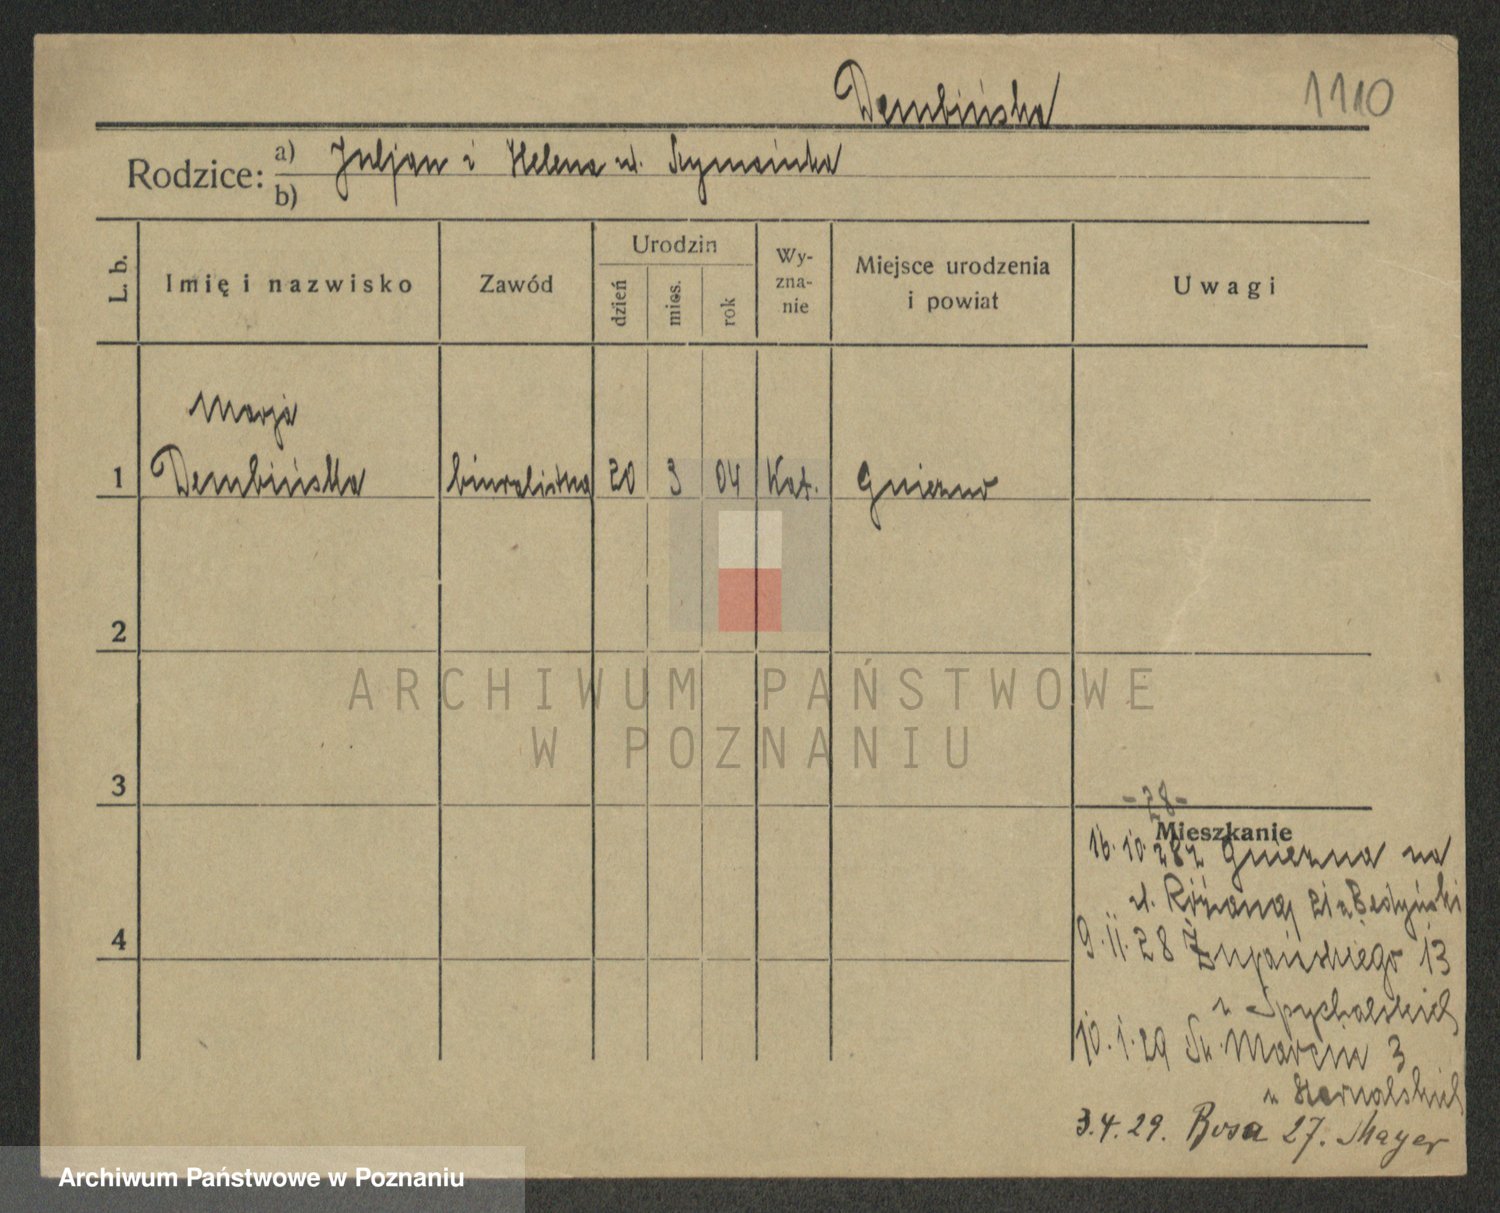 Dembińska 1110
Rodzice: a) Juljan i Helena
b)
L. b. Imię i nazwisko Zawód Urodzin dzień mies. rok Wy-zna-nie Miejsce urodzenia i powiat Uwagi
Marja
1 Dembińska biuralistka 20 3 04 Kat. Gniezno
2
ARCHIWUM PAŃSTWOWE
W POZNANIU
3
-28-
Mieszkanie
16.10.28 z Gniezna na
ul. Różaną 21 u
4
9.11.28 Żupańskiego 13
u Spychalskich
10.1.29 Św. Marcin 3
u
3.4.29. Rosa 27. Mayer
Archiwum Państwowe w Poznaniu